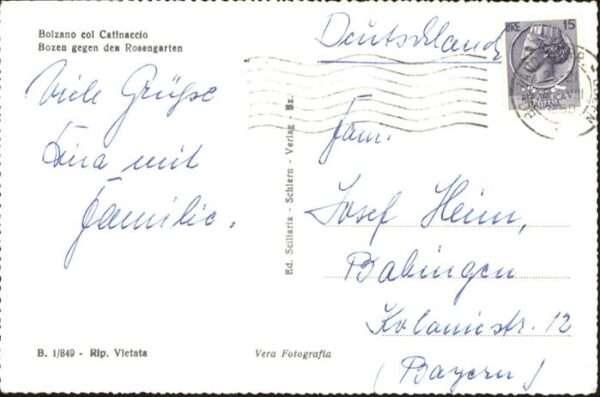 Bolzano col Catinaccio
Bozen gegen den Rosengarten
Viele Grüße
mit
Familie.
Ed. Sciliaria - Schlern - Verlag - Bz.
B. 1/849 - Rip. Vietata
Vera Fotografia
Deutschland
LIRE 15
Fam.
Josef Heim,
Babingen
Koloniestr. 12
(Bayern)